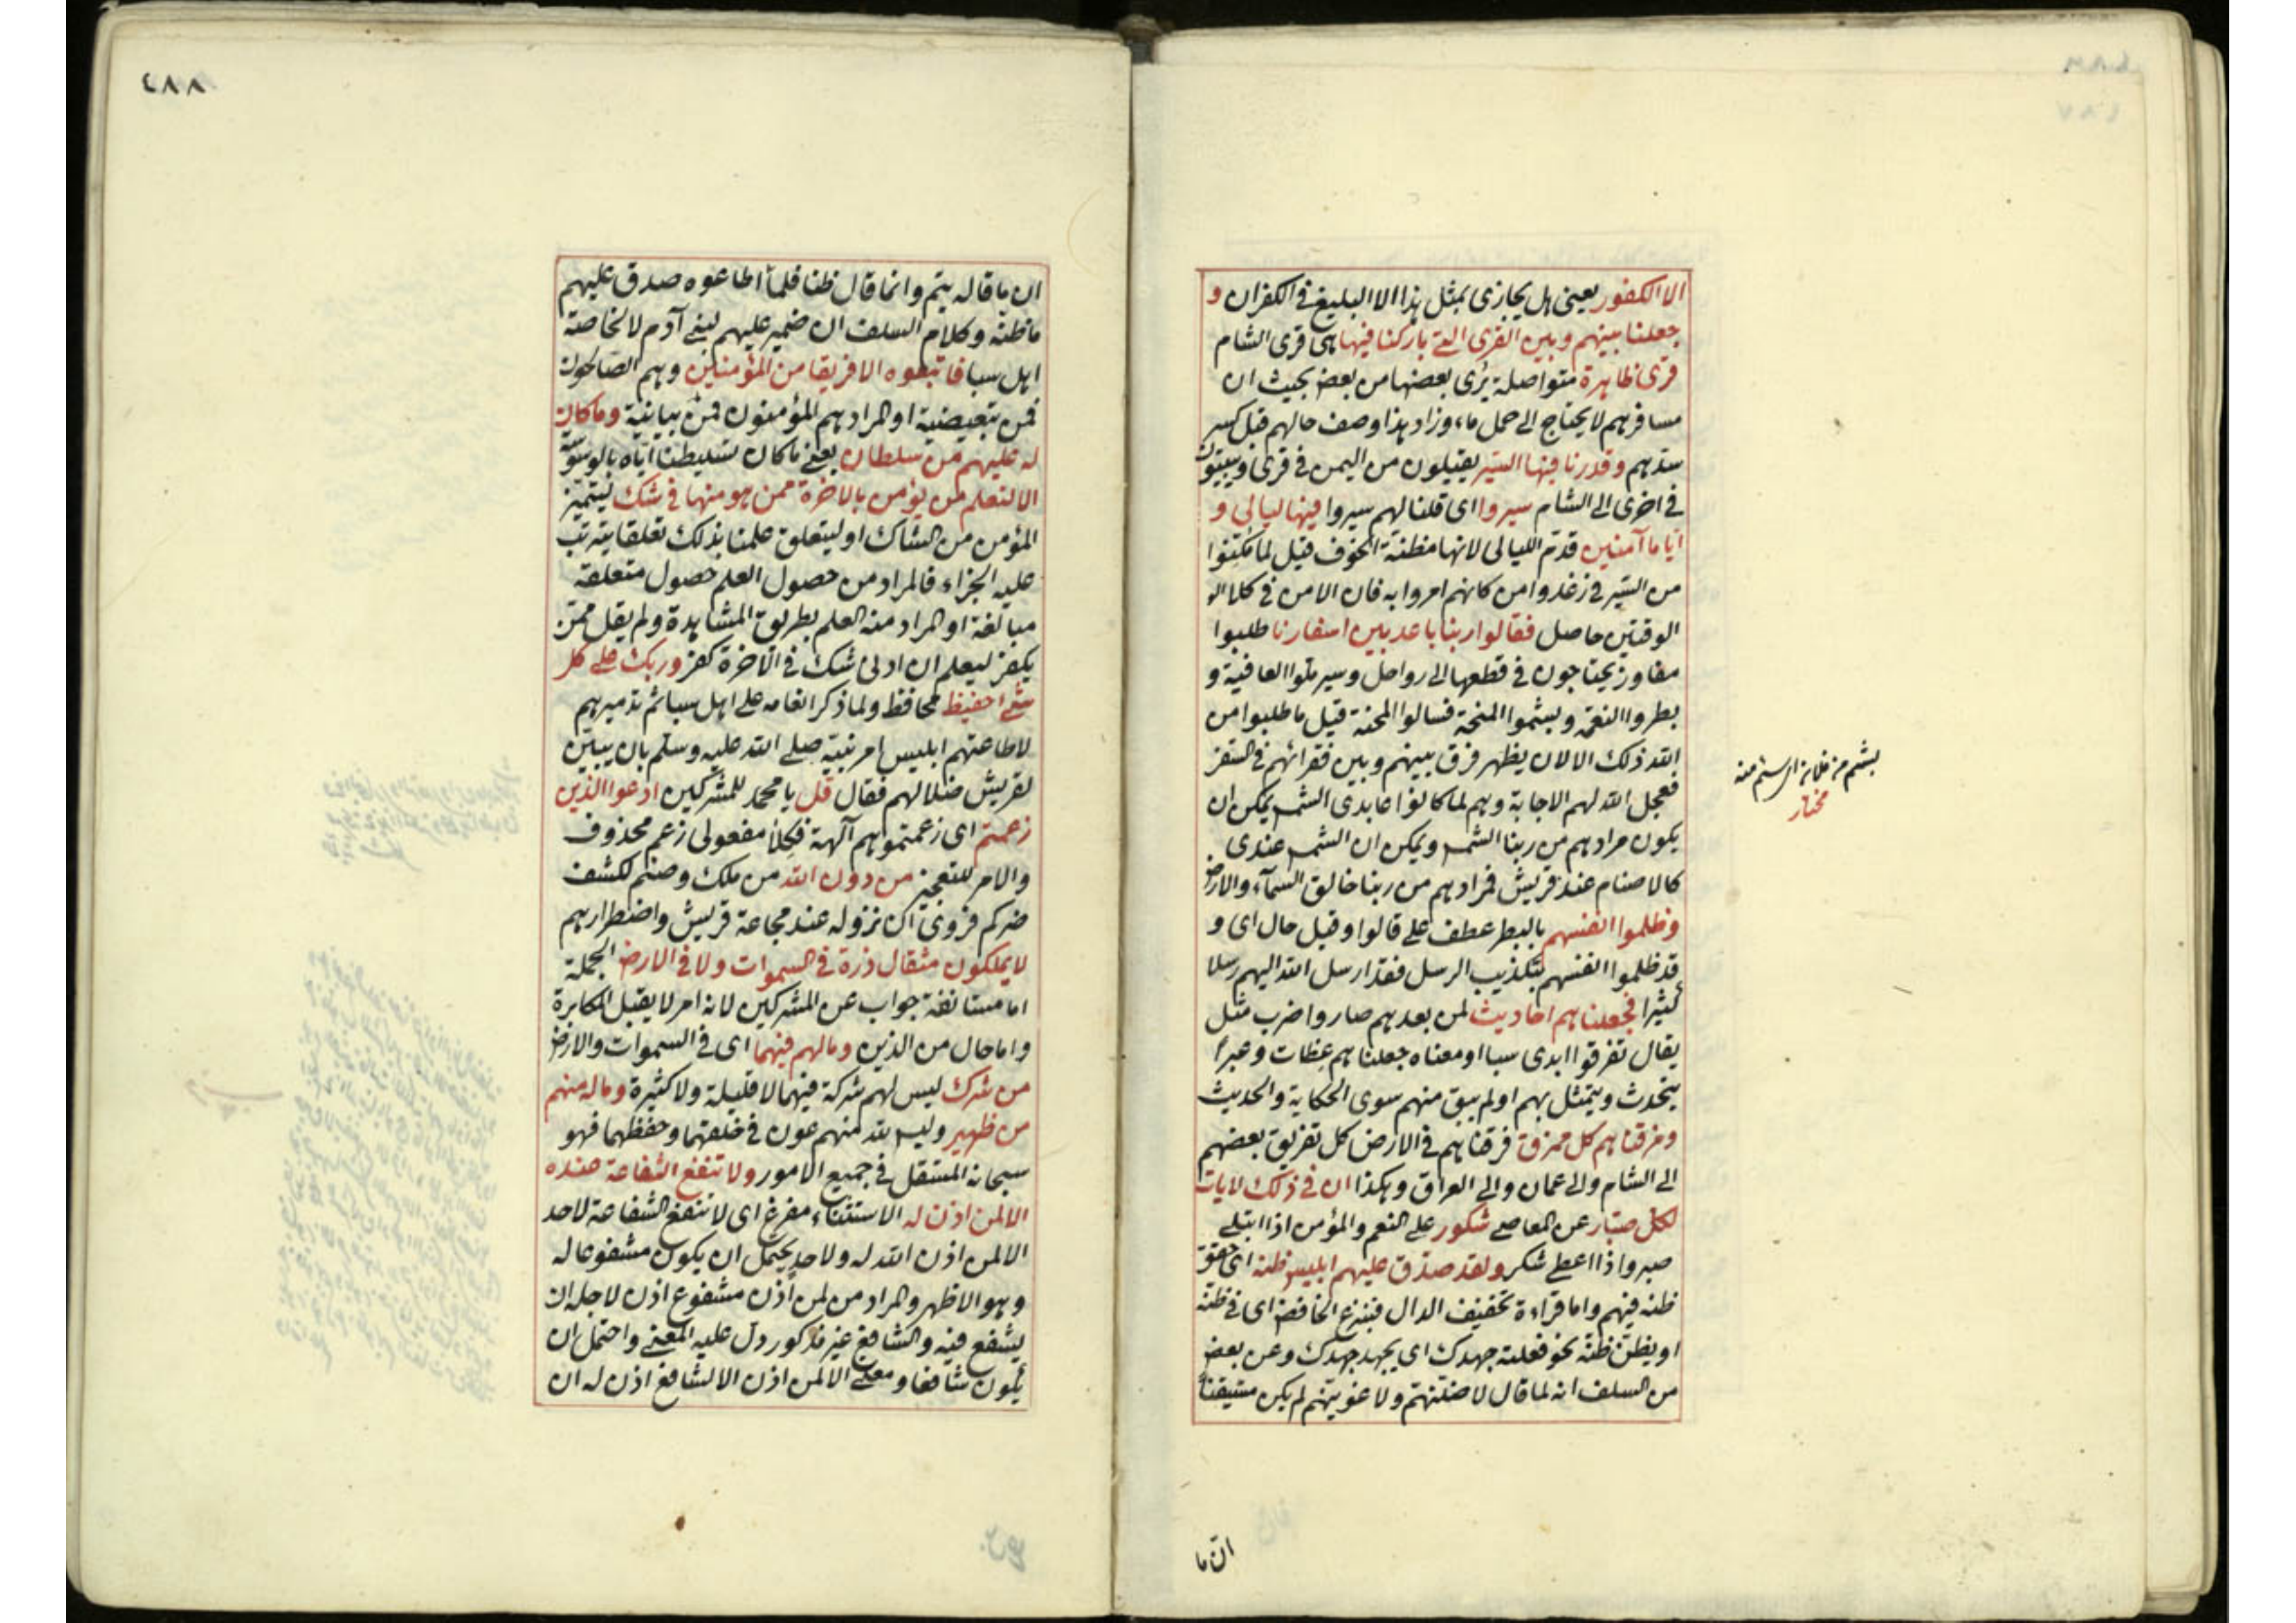 الا الكفور يعنى هل يجازى بمثل هذا الا البليغ فى الكفران و
جعلنا بينهم وبين القرى التى باركنا فيها هى قرى الشام
قرى ظاهرة متواصلة يُرى بعضها من بعض بحيث ان
مسافرهم لا يحتاج الى حمل ماء وزاد هذا وصف حالهم قبل كسر
سدهم وقدرنا فيها السير يقيلون من اليمن فى قرى ويبيتون
فى اخرى الى الشام سيروا اى قلنا لهم سيروا فيها ليالى و
اياما آمنين قدّم الليالى لانها مظنة الخوف قيل لما مكّنوا
من السير فى رغد وامن كانهم امروا به فان الامن فى كلا
الوقتين حاصل فقالوا ربنا باعد بين اسفارنا طلبوا
مفاوز يحتاجون فى قطعها الى رواحل وسير ملّوا العافية و
بطروا النعمة وبشموا المنحة فسالوا المحنة قيل ما طلبوا من
الله ذلك الا لان يظهر فرق بينهم وبين فقرائهم فى السفر
فعجل الله لهم الاجابة وهم لما كانوا عابدى الشمس يمكن ان
يكون مرادهم من ربنا الشمس ويمكن ان الشمس عندى
كالاصنام عند قريش فمرادهم من ربنا خالق السمآء والارض
وظلموا انفسهم بالبطر عطف على قالوا وقيل حال اى و
قد ظلموا انفسهم بتكذيب الرسل فقد ارسل الله اليهم رسلا
كثيرا فجعلناهم احاديث لمن بعدهم صاروا ضرب مثل
يقال تفرقوا ايدى سبا او معناه جعلناهم عِظات وعبرًا
يتحدث ويتمثل بهم او لم يبق منهم سوى الحكاية والحديث
ومزقناهم كل ممزق فرقناهم فى الارض كل تفريق بعضهم
الى الشام والى عمان والى العراق وهكذا ان فى ذلك لايات
لكل صبّار عن المعاصى شكور على النعم والمؤمن اذا ابتلى
صبر واذا اعطى شكر ولقد صدّق عليهم ابليس ظنه اى حقق
ظنه فيهم واما قراءة تخفيف الدال فبنزع الخافض اى فى ظنه
او يظنّ ظنه نحو فعلته جهدك اى يجهد جهدك وعن بعض
من السلف انه لما قال لاضلنهم ولاغوينهم لم يكن متيقنًا
بشم من
مختار
ان ما
٤٨٨
ان ما قاله يتم وانما قال ظنا فلما اطاعوه صدق عليهم
ما ظنه وكلام السلف ان ضمير عليهم لبنى آدم لا لخاصة
اهل سبا فاتبعوه الا فريقا من المؤمنين وهم الصالحون
فمن تبعيضية او المراد هم المؤمنون فمن بيانية وما كان
له عليهم من سلطان يعنى ما كان تسليطنا اياه بالوسوسة
الا لنعلم من يؤمن بالاخرة ممن هو منها فى شك ليتميز
المؤمن من الشاك او ليتعلق علمنا بذلك تعلقا يترتب
عليه الجزاء فالمراد من حصول العلم حصول متعلقه
مبالغة او المراد منه العلم بطريق المشاهدة ولم يقل ممّن
يكفر ليعلم ان ادنى شك فى الآخرة كفر وربك على كل
شئ حفيظ محافظ ولما ذكر انعامه على اهل سبا ثم تدميرهم
لاطاعتهم ابليس امر نبيّه صلى الله عليه وسلم بان يبيّن
لقريش ضلالهم فقال قل يا محمد للمشركين ادعوا الذين
زعمتم اى زعمتموهم آلهة فكلا مفعولى زعم محذوف
والامر للتعجيز من دون الله من ملك وصنم لكشف
ضركم فروى ان نزوله عند مجاعة قريش واضطرارهم
لا يملكون مثقال ذرة فى السموات ولا فى الارض الجملة
اما مستانفة جواب عن المشركين لانه امر لا يقبل المكابرة
واما حال من الذين وما لهم فيهما اى فى السموات والارض
من شرك ليس لهم شركة فيهما لا قليلة ولا كثيرة وما له منهم
من ظهير وليس لله منهم عون فى خلقهما وحفظهما فهو
سبحانه المستقل فى جميع الامور ولا تنفع الشفاعة عنده
الا لمن اذن له الاستثناء مفرغ اى لا تنفع الشفاعة لاحد
الا لمن اذن الله له ولاحد يحتمل ان يكون مشفوعا له
وهو الاظهر والمراد من لمن اَذن مشفوع اذن لاجله ان
يشفع فيه والشافع غير مذكور دل عليه المعنى واحتمل ان
يكون شافعا ومعنى الا لمن اذن الا لشافع اذن له ان